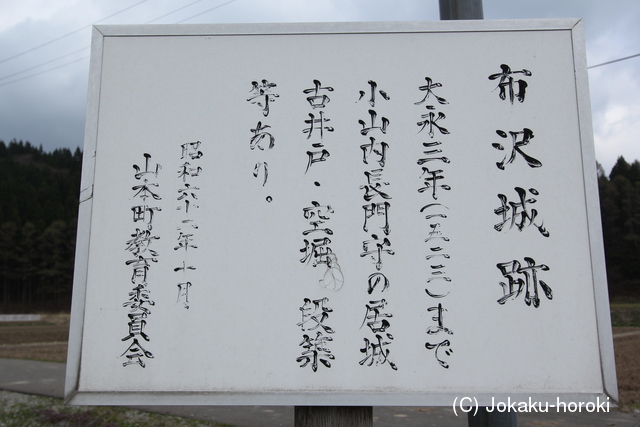 布沢城跡
大永三年(一五二三)まで
小山内長門守の居城
古井戸・空堀 段築
等あり。
昭和六十二年十月
山本町教育委員会
(C) Jokaku-horoki